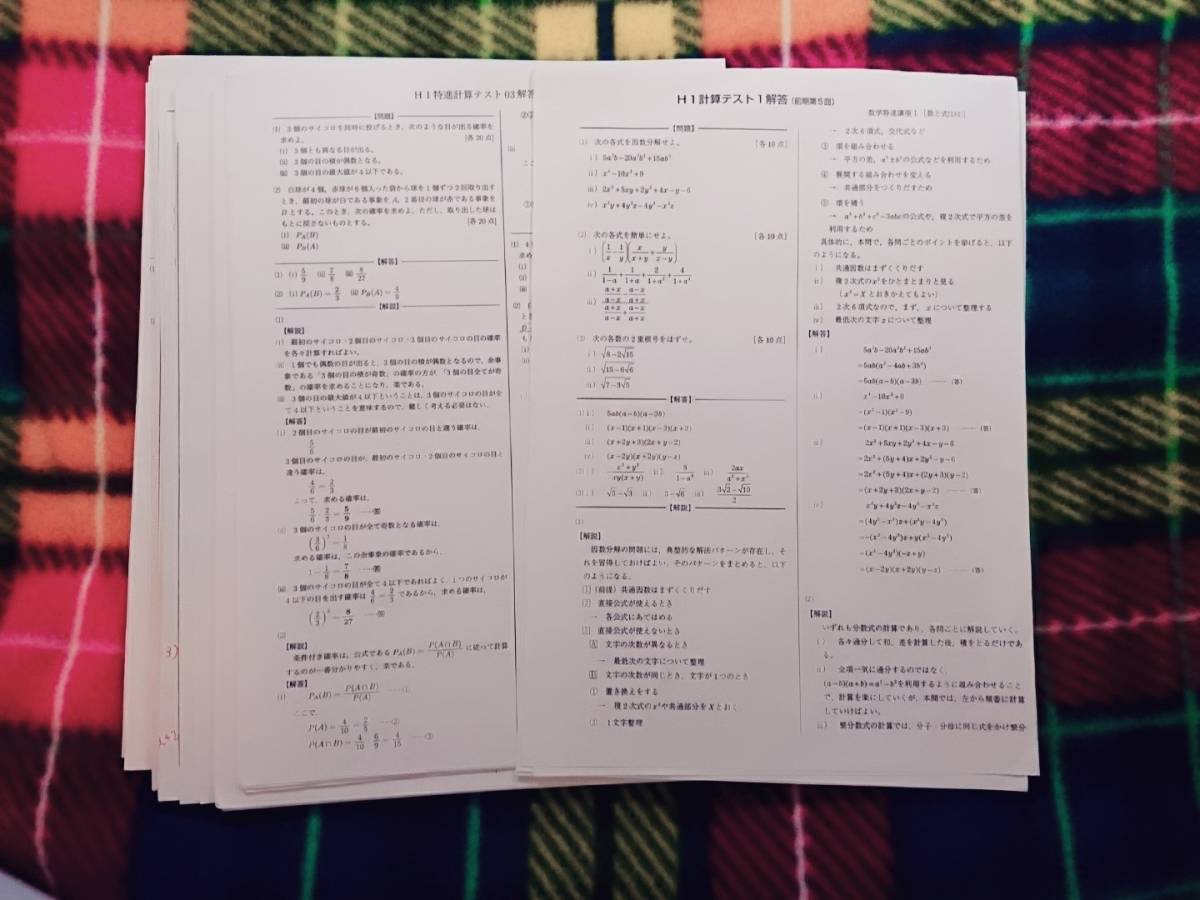 H1特進計算テスト03解答
【問題】
(1) 3個のサイコロを同時に投げるとき，次のような目が出る確率を
求めよ。 [各20点]
(i) 3個とも異なる目が出る。
(ii) 3個の目の積が偶数となる。
(iii) 3個の目の最大値が4以下である。
(2) 白球が4個，赤球が6個入った袋から球を1個ずつ2回取り出す
とき，最初の球が白である事象を A，2番目の球が赤である事象を
Bとする。このとき，次の確率を求めよ。ただし，取り出した球は
もとに戻さないものとする。 [各20点]
(i) P_A(B)
(ii) P_B(A)
【解答】
(1) (i) 5/9 (ii) 7/8 (iii) 8/27
(2) (i) P_A(B)=2/3 (ii) P_B(A)=4/9
【解説】
(1)
【解説】
(i) 最初のサイコロ・2個目のサイコロ・3個目のサイコロの目の確率
を各々計算すればよい。
(ii) 1個でも偶数の目が出ると，3個の目の積が偶数となるので，余事
象である「3個の目の積が奇数」の確率の方が，「3個の目全てが奇
数」の確率を求めることになり，楽である。
(iii) 3個の目の最大値が4以下ということは，3個のサイコロの目が全
て4以下ということを意味するので，難しく考える必要はない。
【解答】
(i) 2個目のサイコロの目が最初のサイコロの目と違う確率は，
5/6
3個目のサイコロの目が，最初のサイコロ・2個目のサイコロの目と
違う確率は，
4/6=2/3
よって，求める確率は，
5/6・2/3=5/9 ……答
(ii) 3個のサイコロの目が全て奇数となる確率は，
(3/6)^3=1/8
求める確率は，この余事象の確率であるから，
1-1/8=7/8 ……答
(iii) 3個のサイコロの目が全て4以下であればよく，1つのサイコロが
4以下の目を出す確率は 4/6=2/3 であるから，求める確率は，
(2/3)^3=8/27 ……答
(2)
【解説】
条件付き確率は，公式である P_A(B)=P(A∩B)/P(A) に従って計算
するのが一番分かりやすく，楽である。
【解答】
(i) P_A(B)=P(A∩B)/P(A) ……①
ここで，
P(A)=4/10=2/5 ……②
P(A∩B)=4/10・6/9=4/15 ……③
H1計算テスト1解答(前期第5回)
【問題】
(1) 次の各式を因数分解せよ。 [各10点]
i) 5a³b-20a²b²+15ab³
ii) x⁴-10x²+9
iii) 2x²+5xy+2y²+4x-y-6
iv) x²y+4y²z-4y³-x²z
(2) 次の各式を簡単にせよ。 [各10点]
i) (1/x-1/y)(x/(x+y)+y/(x-y))
ii) 1/(1-a)+1/(1+a)+2/(1+a²)+4/(1+a⁴)
iii) ((a+x)/(a-x)-(a-x)/(a+x))/((a+x)/(a-x)+(a-x)/(a+x))
(3) 次の各数の2重根号をはずせ。 [各10点]
i) √(8-2√15)
ii) √(15-6√6)
iii) √(7-3√5)
【解答】
(1) i) 5ab(a-b)(a-3b)
ii) (x-1)(x+1)(x-3)(x+3)
iii) (x+2y+3)(2x+y-2)
iv) (x-2y)(x+2y)(y-z)
ii) 8/(1-a⁸) iii) 2ax/(a²+x²)
(3) i) √5-√3 ii) 3-√6 iii) (3√2-√10)/2
【解説】
(1)
【解説】
因数分解の問題には，典型的な解法パターンが存在し，そ
れを習得しておけばよい。そのパターンをまとめると，以下
のようになる。
1 (前提) 共通因数はまずくくりだす
2 直接公式が使えるとき
→ 各公式にあてはめる
3 直接公式が使えないとき
A 文字の次数が異なるとき
→ 最低次の文字について整理
B 文字の次数が同じとき，文字が1つのとき
① 置き換えをする
→ 複2次式のx²や共通部分をXとおく
② 1文字整理
数学特進講座I [数と式]
→ 2次6項式，交代式など
③ 項を組み合わせる
→ 平方の差，a³+b³の公式などを利用するため
④ 展開する組み合わせを変える
→ 共通部分をつくりだすため
⑤ 項を補う
→ a³+b³+c³-3abcの公式や，複2次式で平方の差を
利用するため
具体的に，本問で，各問ごとのポイントを挙げると，以下
のようになる。
i) 共通因数はまずくくりだす
ii) 複2次式のx²をひとまとまりと見る
(x²=Xとおきかえてもよい)
iii) 2次6項式なので，まず，xについて整理する
iv) 最低次の文字zについて整理
【解答】
i) 5a³b-20a²b²+15ab³
=5ab(a²-4ab+3b²)
=5ab(a-b)(a-3b) ……(答)
ii) x⁴-10x²+9
=(x²-1)(x²-9)
=(x-1)(x+1)(x-3)(x+3) ……(答)
iii) 2x²+5xy+2y²+4x-y-6
=2x²+(5y+4)x+2y²-y-6
=2x²+(5y+4)x+(2y+3)(y-2)
=(x+2y+3)(2x+y-2) ……(答)
iv) x²y+4y²z-4y³-x²z
=(4y²-x²)z+(x²y-4y³)
=-(x²-4y²)z+y(x²-4y²)
=(x²-4y²)(-z+y)
=(x-2y)(x+2y)(y-z) ……(答)
(2)
【解説】
いずれも分数式の計算であり，各問ごとに解説していく。
i) 各々通分して和，差を計算した後，積をとるだけであ
る。
ii) 全項一気に通分するのではなく，
(a-b)(a+b)=a²-b²を利用するように組み合わせること
で，計算を楽にしていくが，本問では，左から順番に計算
していけばよい。
iii) 繁分数式の計算では，分子・分母に同じ式をかけ繁分
3)